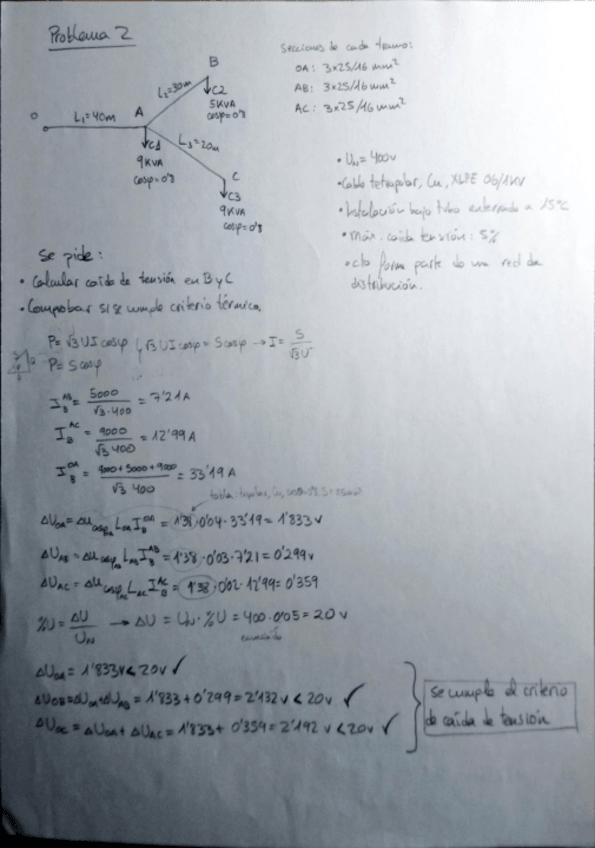 Problema 2
Secciones de cada tramo:
OA: 3x25/16 mm²
AB: 3x25/16 mm²
AC: 3x25/16 mm²
O
L₁=40m
A
L₂=30m
B
C2
5KVA
cosφ=0'8
C1
9KVA
cosφ=0'8
L₃=20m
C
C3
9KVA
cosφ=0'8
• UN = 400V
• Cable tetrapolar, Cu, XLPE 0,6/1KV
• Instalación bajo tubo enterrado a 15°C
• máx. caída tensión: 5%
• cto forma parte de una red de
distribución.
Se pide:
• Calcular caída de tensión en B y C
• Comprobar si se cumple criterio térmico.
P = √3 U I cosφ } √3 U I cosφ = S cosφ → I = S/√3U
P = S cosφ
I_B^AB = 5000/√3·400 = 7'21A
I_B^AC = 9000/√3 400 = 12'99 A
I_B^OA = 9000+5000+9000/√3 400 = 33'19 A
tabla: Cu,
ΔU_OA = Δu_cosφOA L_OA I_B^OA = 1'38·0'04·33'19 = 1'833 v
ΔU_AB = Δu_cosφAB L_AB I_B^AB = 1'38·0'03·7'21 = 0'299v
ΔU_AC = Δu_cosφAC L_AC I_B^AC = 1'38·0'02·12'99 = 0'359
%U = ΔU/UN → ΔU = UN·%U = 400·0'05 = 20 v
ΔU_OA = 1'833v < 20v ✓
ΔU_OB = ΔU_OA + ΔU_AB = 1'833 + 0'299 = 2'132 v < 20v ✓
ΔU_OC = ΔU_OA + ΔU_AC = 1'833 + 0'359 = 2'192 v < 20v ✓
Se cumple el criterio
de caída de tensión